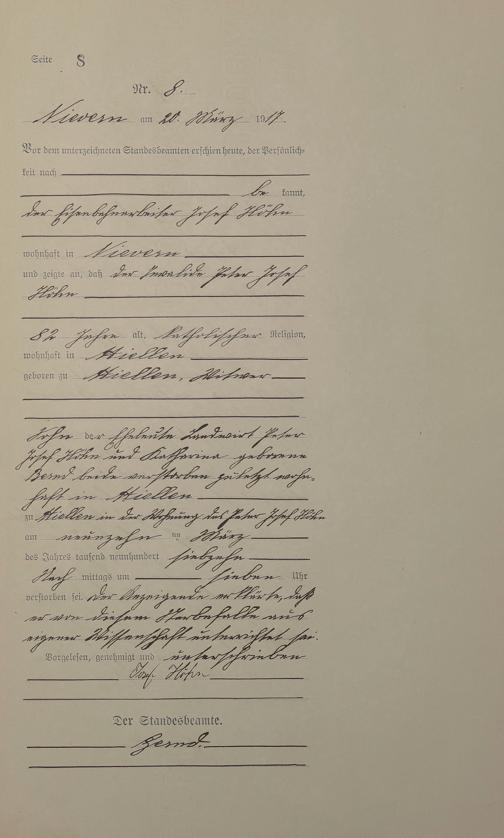 Seite 8
Nr. 8.
Nievern am 20. März 1917.
Vor dem unterzeichneten Standesbeamten erschien heute, der Persönlich-
keit nach
be kannt,
der Eisenbahnarbeiter Josef Höhn
wohnhaft in Nievern
und zeigte an, daß der Invalide Peter Josef
Höhn
82 Jahre alt, katholischer Religion,
wohnhaft in
geboren zu Witwer
Sohn der Eheleute Landwirt Peter
Josef Höhn und Katharina geborene
beide verstorben zuletzt wohn-
haft in
zu in der Wohnung des Peter Josef Höhn
am neunzehn ten März
des Jahres tausend neunhundert siebzehn
Nach mittags um sieben Uhr
verstorben sei. Der Anzeigende erklärte, daß
er von diesem Sterbefalle aus
eigener Wissenschaft unterrichtet sei.
Vorgelesen, genehmigt und unterschrieben
Josef Höhn
Der Standesbeamte.